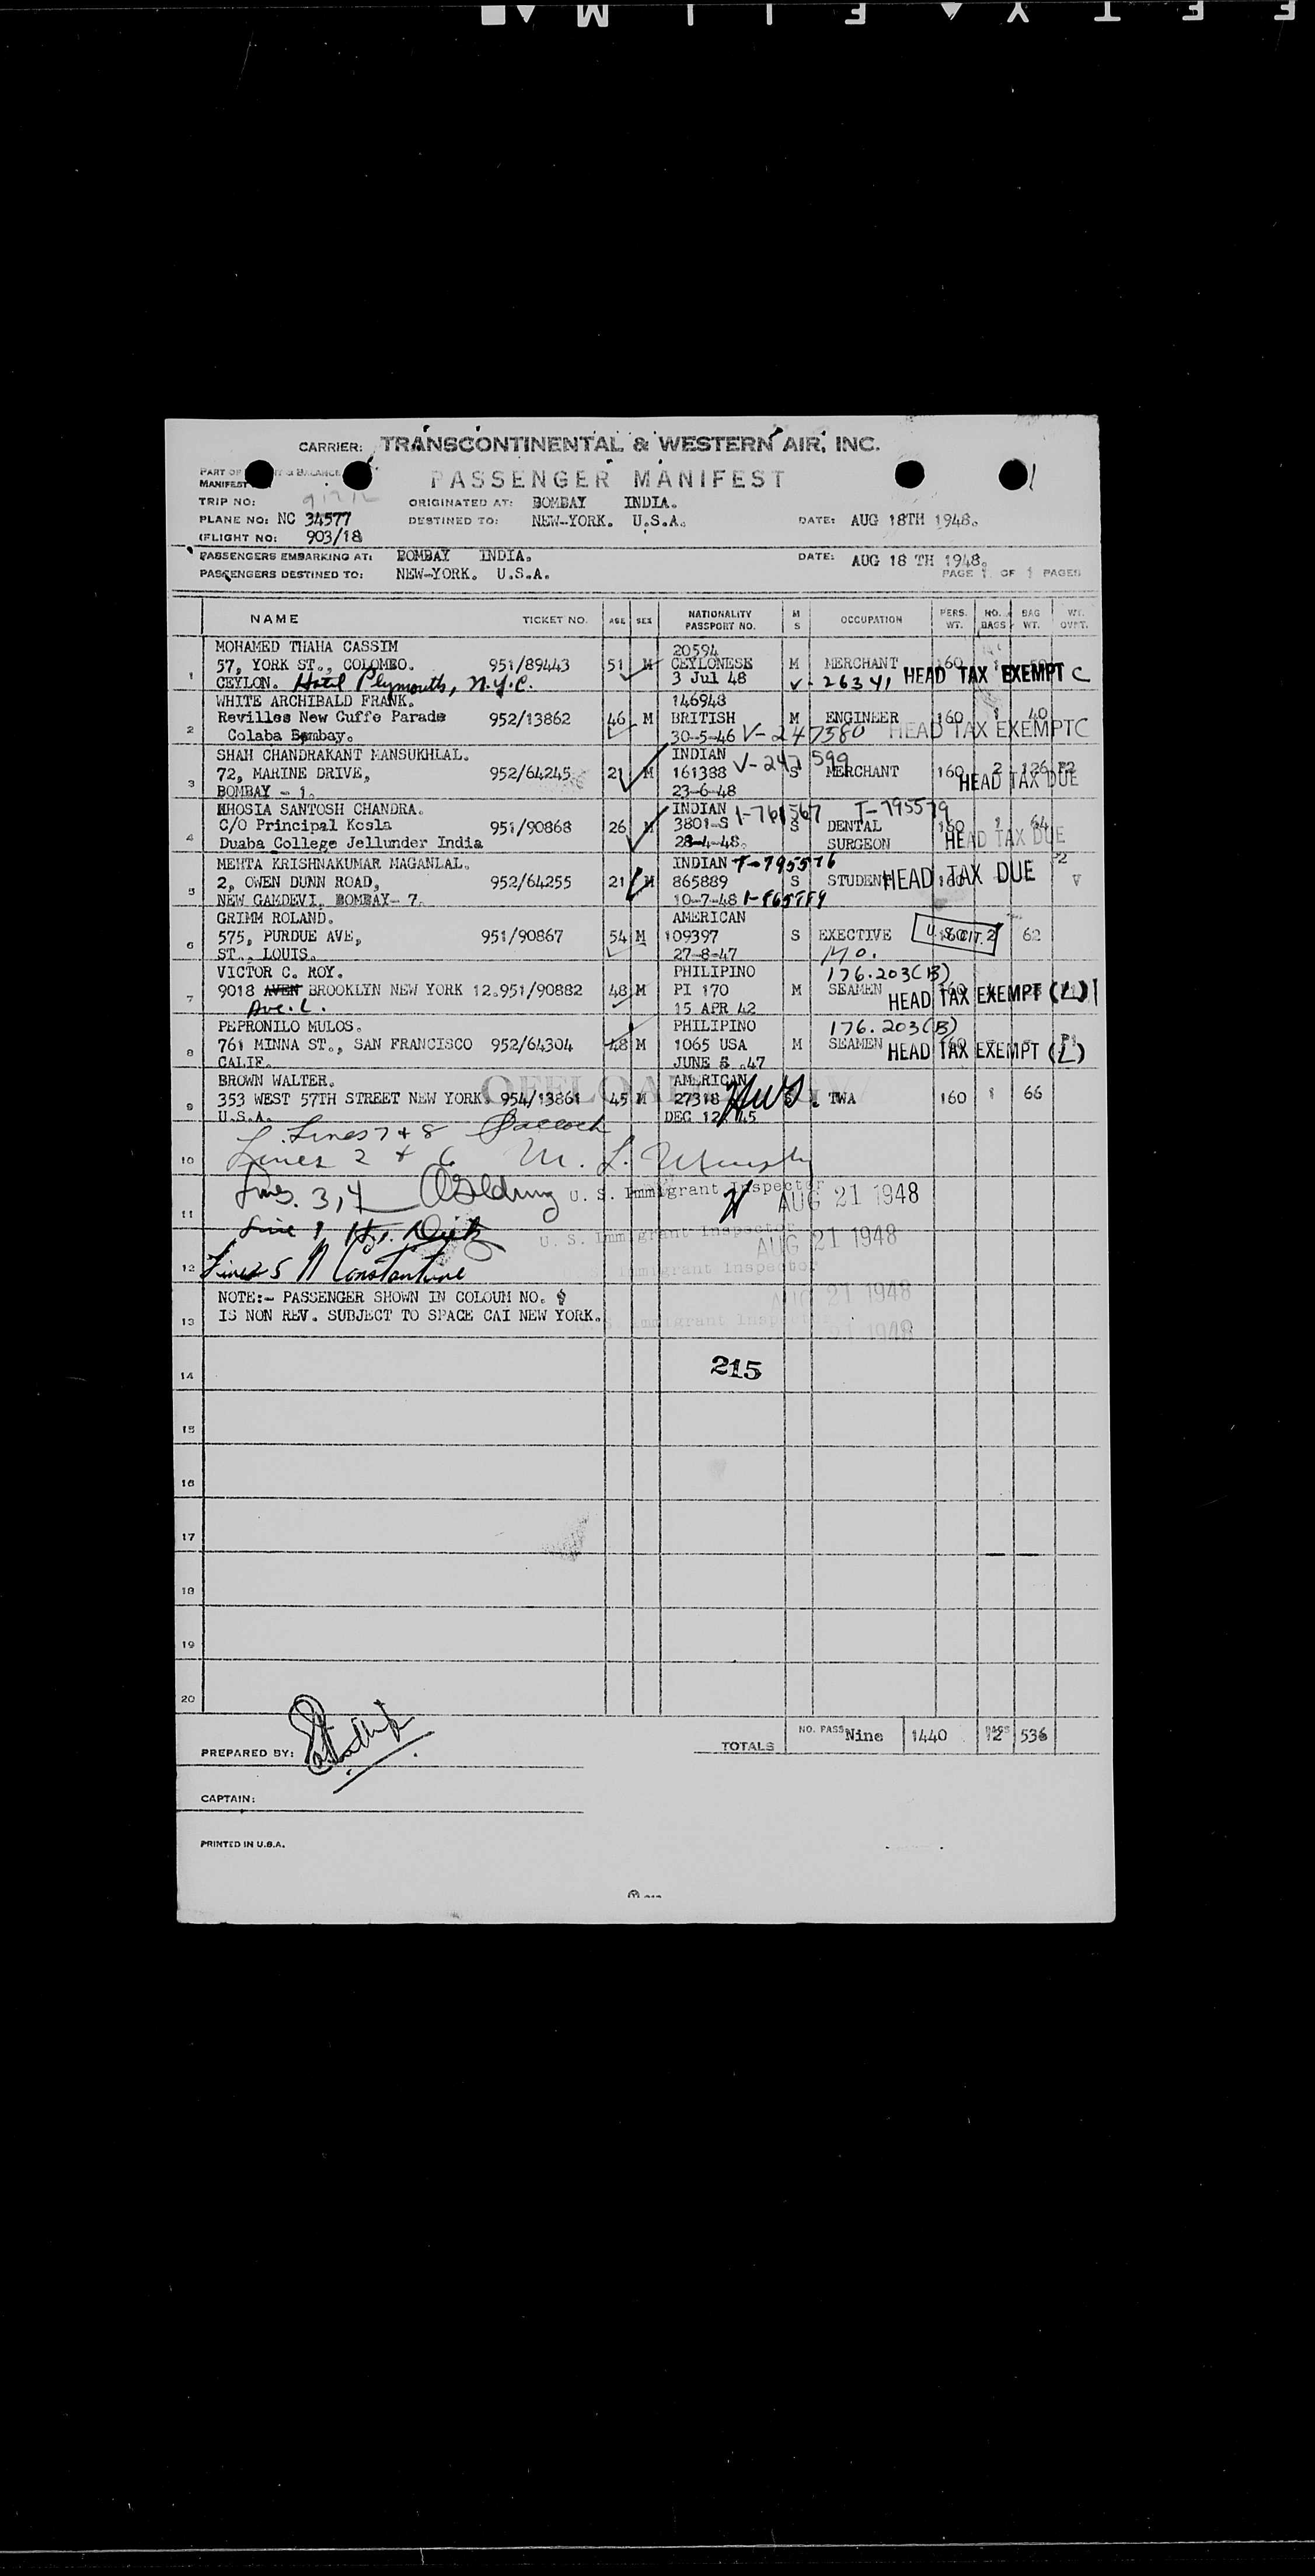 CARRIER: TRANSCONTINENTAL & WESTERN AIR, INC.
PART OF & BALANCE
MANIFEST
PASSENGER MANIFEST
TRIP NO:
ORIGINATED AT: BOMBAY INDIA.
PLANE NO: NC 34577
DESTINED TO: NEW-YORK. U.S.A.
DATE: AUG 18TH 1948.
FLIGHT NO: 903/18
PASSENGERS EMBARKING AT: BOMBAY INDIA.
DATE: AUG 18 TH 1948.
PASSENGERS DESTINED TO: NEW-YORK. U.S.A.
PAGE 1 OF 1 PAGES
NAME TICKET NO. AGE SEX NATIONALITY PASSPORT NO. M S OCCUPATION PERS. WT. NO. BAGS BAG WT. WT. OVPT.
MOHAMED THAHA CASSIM 20594
1 57, YORK ST., COLOMBO. 951/89443 51 M CEYLONESE M MERCHANT 160 1
CEYLON. Hotel Plymouth, N.Y.C. 3 Jul 48 V-26341 HEAD TAX EXEMPT C
WHITE ARCHIBALD FRANK. 146948
2 Revilles New Cuffe Parade 952/13862 46 M BRITISH M ENGINEER 160 1 40
Colaba Bombay. 30-5-46 V-247580 HEAD TAX EXEMPT C
SHAH CHANDRAKANT MANSUKHLAL. INDIAN V-247599
3 72, MARINE DRIVE, 952/64245 21 M 161388 S MERCHANT 160 2 126
BOMBAY - 1. 23-6-48 HEAD TAX DUE
KHOSIA SANTOSH CHANDRA. INDIAN 1-761567 T-795579
4 C/O Principal Kosla 951/90868 26 M 3801-S S DENTAL 160 1 64
Duaba College Jellunder India 28-4-48. SURGEON HEAD TAX DUE
MEHTA KRISHNAKUMAR MAGANLAL. INDIAN T-795576
5 2, OWEN DUNN ROAD, 952/64255 21 M 865889 S STUDENT HEAD TAX DUE
NEW GAMDEVI, BOMBAY- 7. 10-7-48
GRIMM ROLAND. AMERICAN
6 575, PURDUE AVE, 951/90867 54 M 109397 S EXECTIVE U.S. CIT. 160 2 62
ST., LOUIS. 27-8-47 Mo.
VICTOR C. ROY. PHILIPINO 176.203(B)
7 9018 AVEN BROOKLYN NEW YORK 12. 951/90882 48 M PI 170 M SEAMEN
Ave. L. 15 APR 42 HEAD TAX EXEMPT (L)
PEPRONILO MULOS. PHILIPINO 176.203(B)
8 761 MINNA ST., SAN FRANCISCO 952/64304 48 M 1065 USA M SEAMEN
CALIF. JUNE 5 .47 HEAD TAX EXEMPT (L)
BROWN WALTER. AMERICAN
9 353 WEST 57TH STREET NEW YORK. 954/13861 45 M 27318 TWA 160 1 66
U.S.A. DEC 12 45
Lines 7 & 8
10 Lines 2 & 6 M. L. Murphy
Lines. 3, 4 U. S. Immigrant Inspector AUG 21 1948
11
Line 1 U. S. Immigrant Inspector AUG 21 1948
12 Lines 5 N Constantine U. S. Immigrant Inspector
AUG 21 1948
NOTE:- PASSENGER SHOWN IN COLOUM NO. 9
13 IS NON REV. SUBJECT TO SPACE CAI NEW YORK. Immigrant Inspector
21 1948
14 215
15
16
17
18
19
20
TOTALS NO. PASS Nine 1440 BAGS 12 536
PREPARED BY:
CAPTAIN:
PRINTED IN U.S.A.